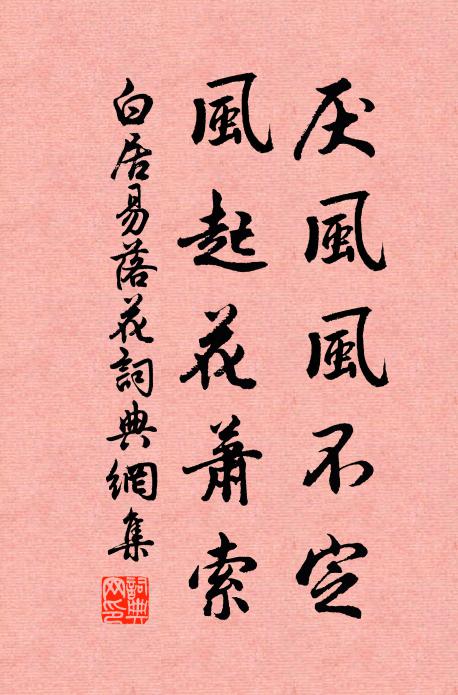 厌風風不定
風起花蕭索
白居易落花詞典網集
詞典網印